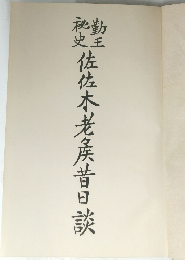 勤王
秘史
佐佐木老侯昔日談